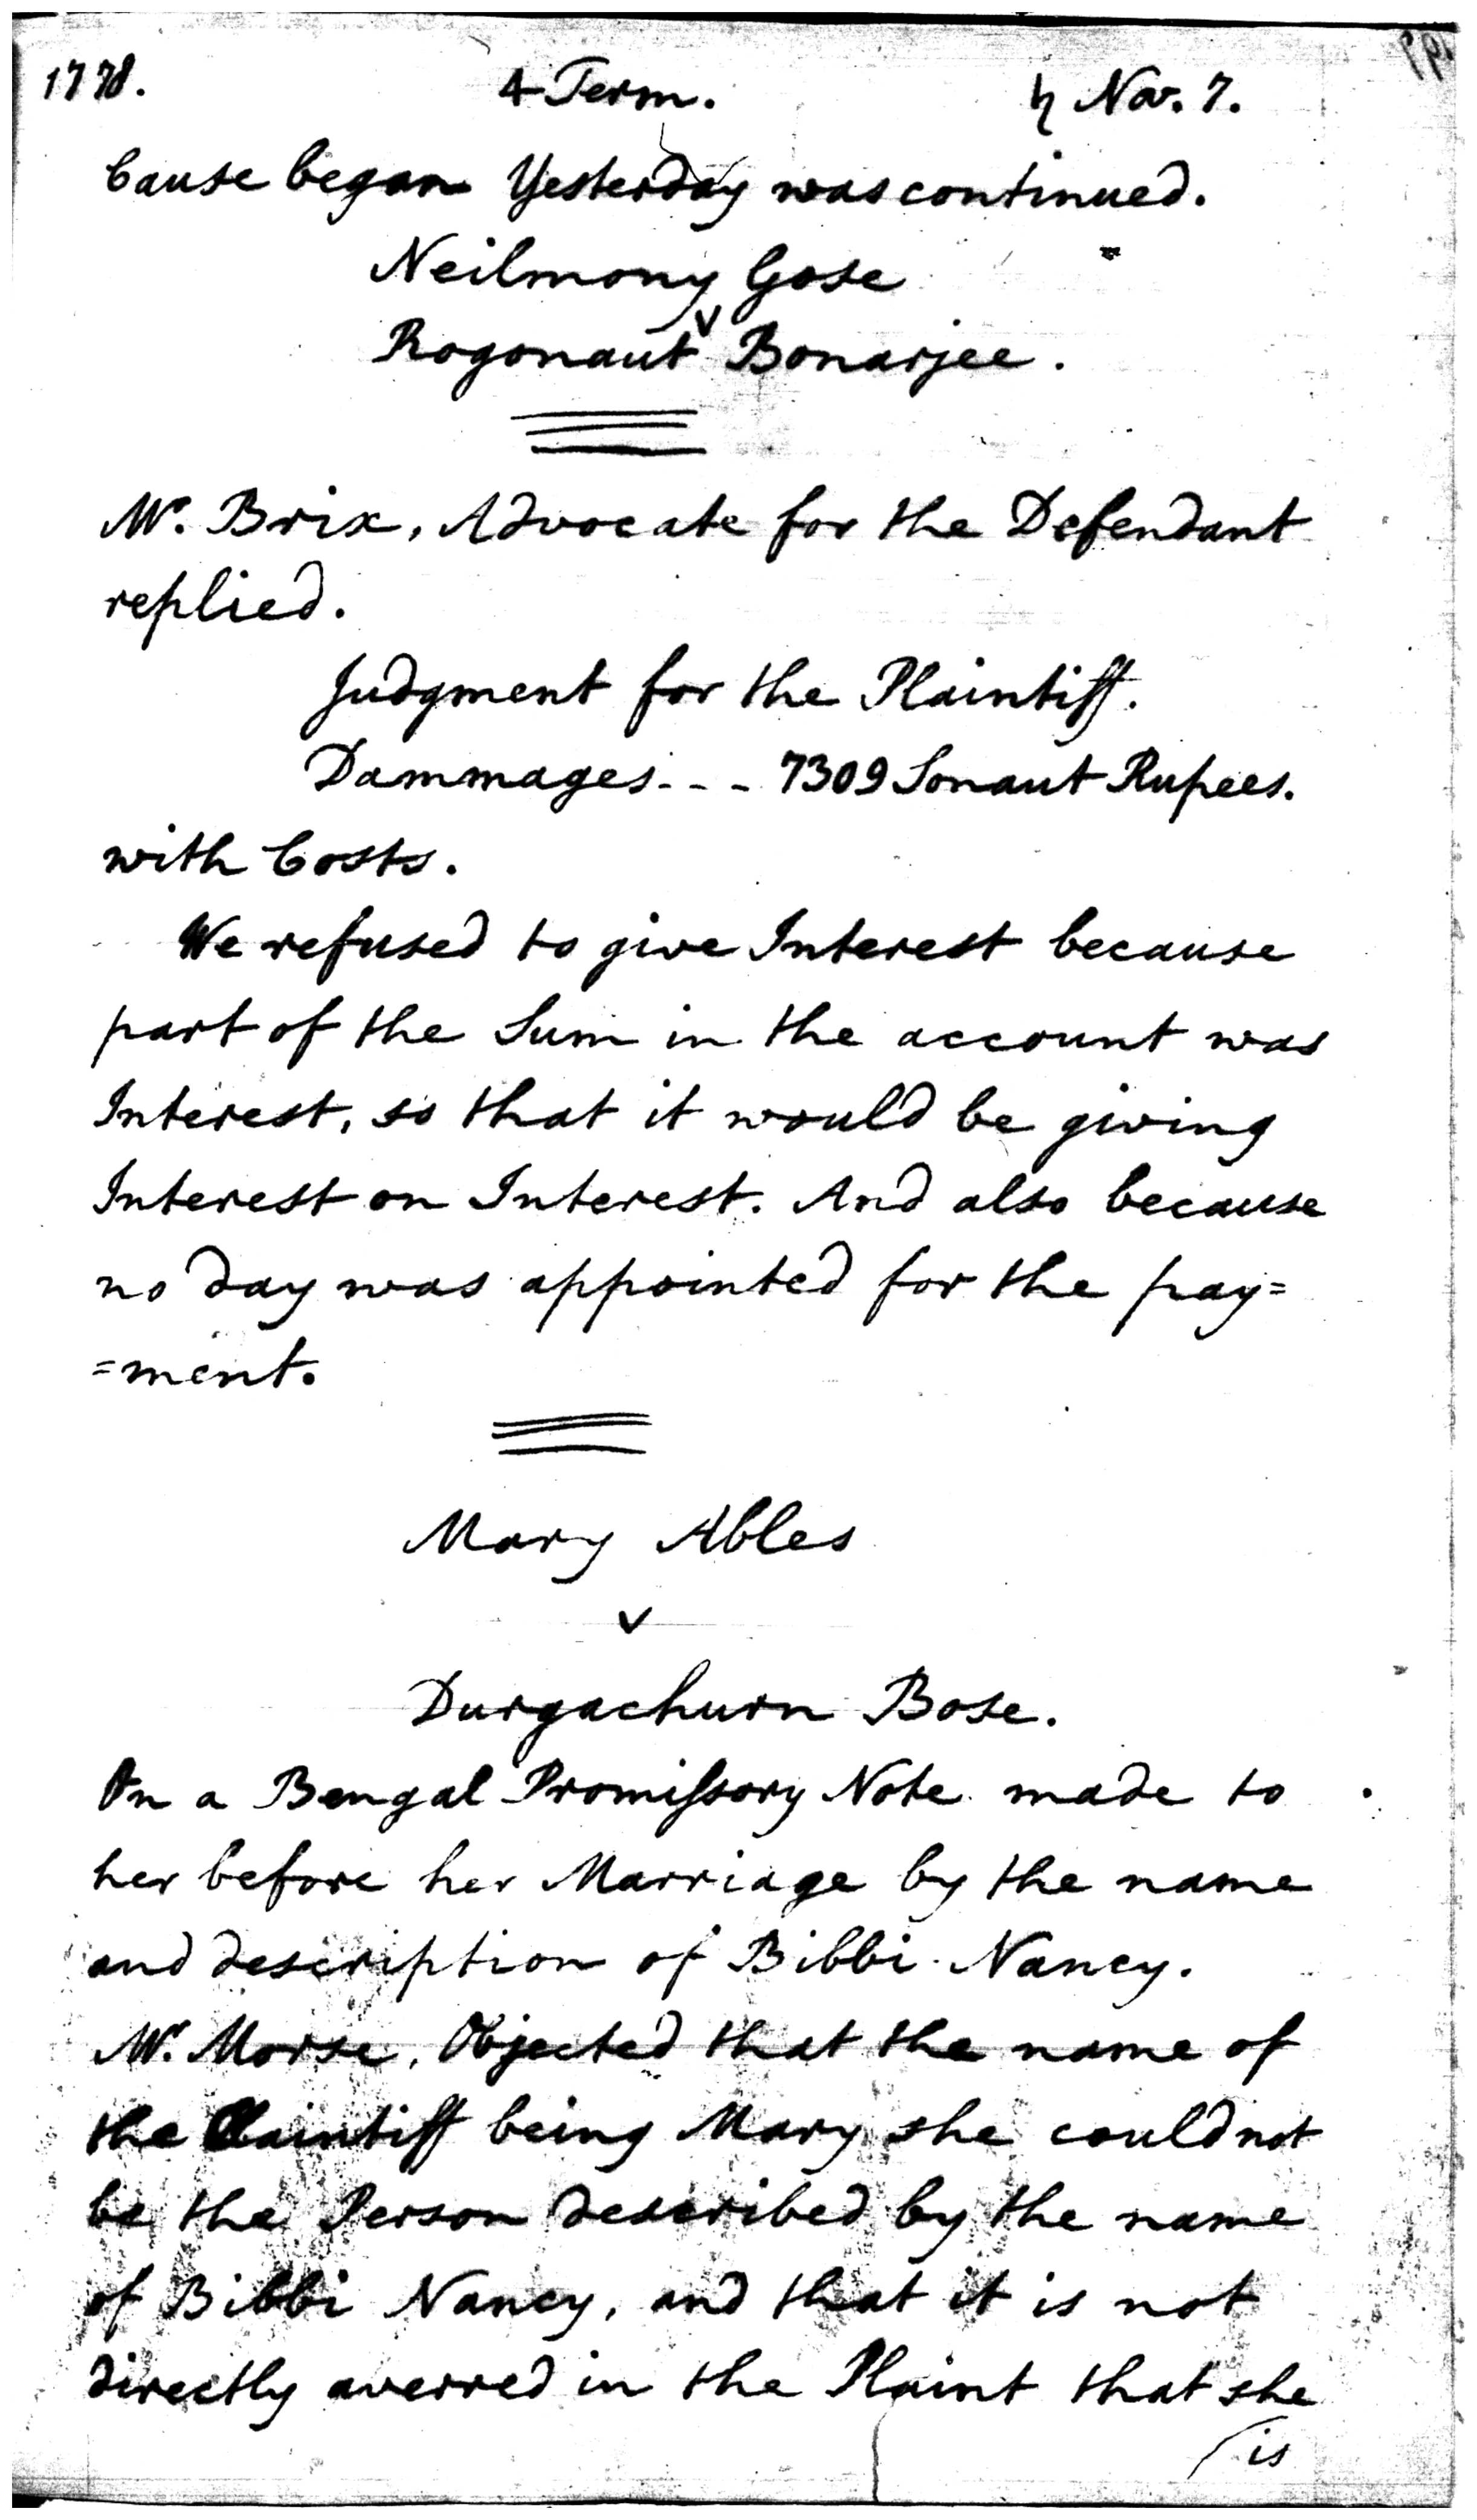 1778. 4 Term. ♄ Nov. 7.
Cause began Yesterday was continued.
Neilmony Gose
v
Rogonaut Bonarjee.
Mr. Brix, Advocate for the Defendant
replied.
Judgment for the Plaintiff.
Dammages - - - 7309 Sonaut Rupees.
with Costs.
We refused to give Interest because
part of the Sum in the account was
Interest, so that it would be giving
Interest on Interest. And also because
no day was appointed for the pay=
=ment.
Mary Ables
v
Durgachurn Bose.
On a Bengal Promissory Note made to
her before her Marriage by the name
and description of Bibbi Nancy.
Mr. Morse, Objected that the name of
the Plaintiff being Mary she could not
be the Person described by the name
of Bibbi Nancy, and that it is not
directly averred in the Plaint that she
is